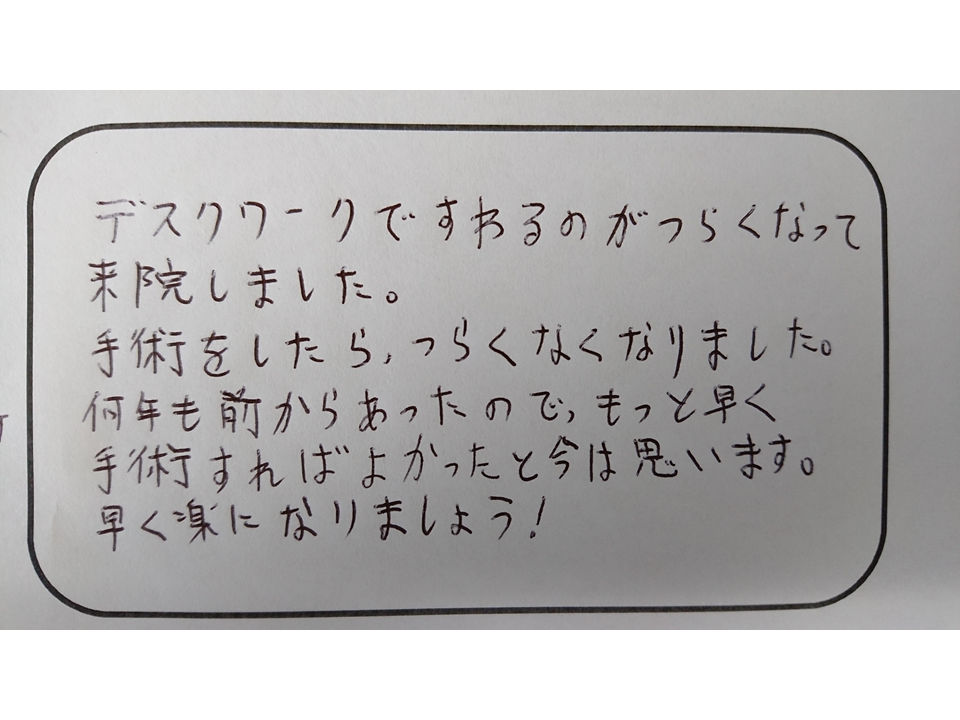 デスクワークですわるのがつらくなって
来院しました。
手術をしたら、つらくなくなりました。
何年も前からあったので、もっと早く
手術すればよかったと今は思います。
早く楽になりましょう!